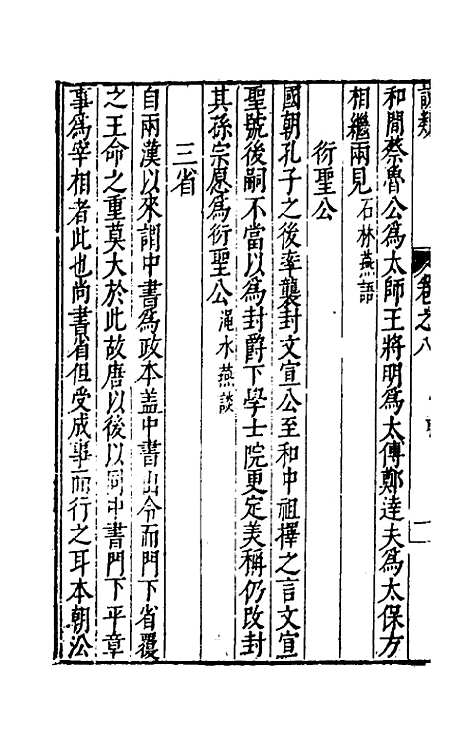 說類
卷之八
和間蔡魯公爲太師王將明爲太傅鄭達夫爲太保方
相繼兩見石林燕語
衍聖公
國朝孔子之後率襲封文宣公至和中祖擇之言文宣
聖號後嗣不當以爲封爵下學士院更定美稱仍改封
其孫宗愿爲衍聖公澠水燕談
三省
自兩漢以來謂中書爲政本盖中書出令而門下省覆
之王命之重莫大於此故唐以後以同中書門下平章
事爲宰相者此也尚書省但受成事而行之耳本朝㳂